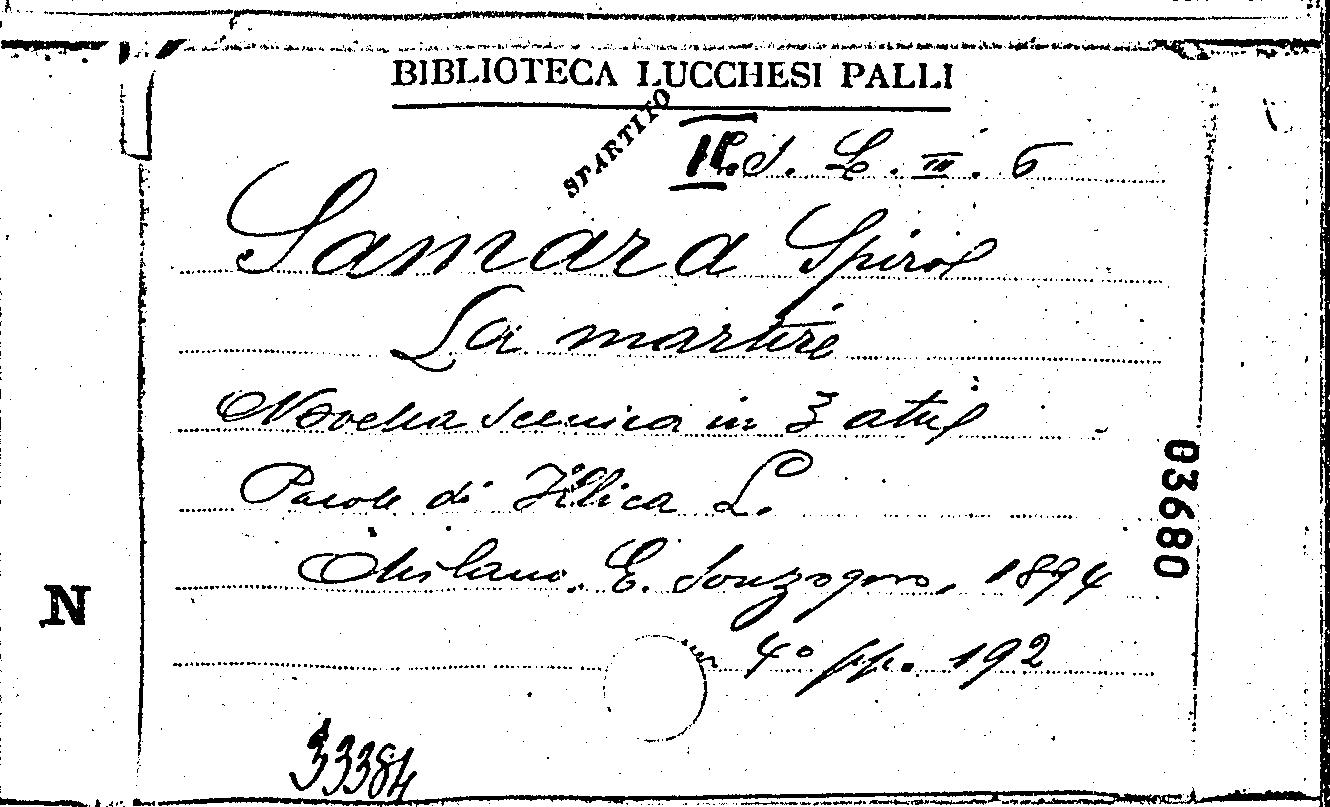 BIBLIOTECA LUCCHESI PALLI
SPARTITO
S. L. III. 6
Samara Spiro
La martire
Novella scenica in 3 atti
Parole di Illica L.
Milano. E. Sonzogno, 1894
in 4° pp. 192
03680
N
33384